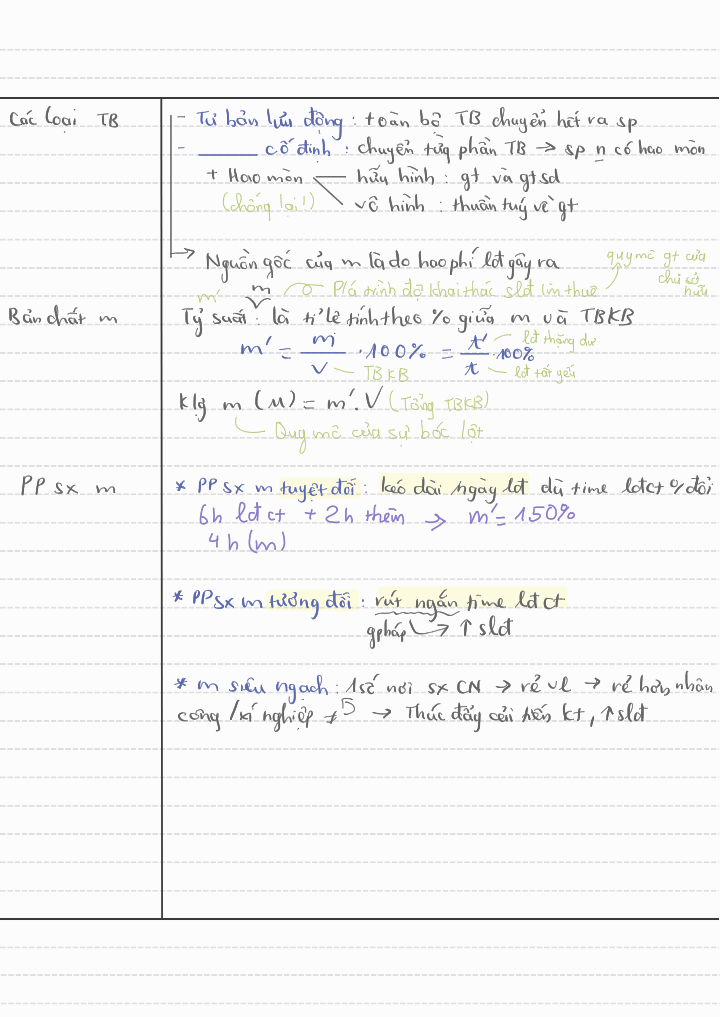 Các loại TB
- Tư bản lưu động : toàn bộ TB chuyển hết ra sp
- ______ cố định : chuyển từng phần TB → sp n có hao mòn
+ Hao mòn — hữu hình : gt và gtsd
(chống lại!) vô hình : thuần tuý về gt
→ Nguồn gốc của m là do hao phí lđ gây ra
quy mô gt của
chủ sở
hữu
m' m P/á trình độ khai thác slđ làm thuê
V
Bản chất m
Tỷ suất : là tỉ lệ tính theo % giữa m và TBKB
m' = m/V · 100% = t'/t · 100%
lđ thặng dư
TBKB
lđ tất yếu
Klg m (M) = m'. V (Tổng TBKB)
Quy mô của sự bóc lột
PP sx m
* PP sx m tuyệt đối : kéo dài ngày lđ dù time lđct 0 đổi
6h lđ ct + 2h thêm → m' = 150%
4h (m)
* PP sx m tương đối : rút ngắn time lđ ct
gpháp → ↑ slđ
* m siêu ngạch : 1 số nơi sx CN → rẻ vl → rẻ hơn, nhân
công / xí nghiệp ≠ → Thúc đẩy cải tiến kt, ↑ slđ